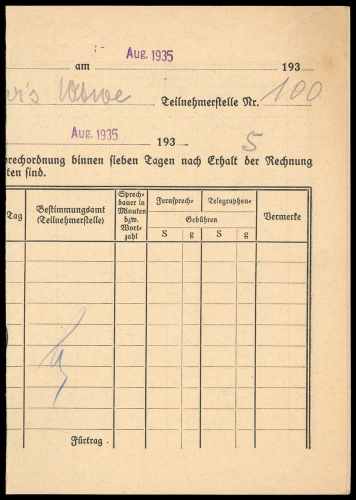 am Aug. 1935 193
er's Wwe Teilnehmerstelle Nr. 100
Aug. 1935 193 5
prechordnung binnen sieben Tagen nach Erhalt der Rechnung
ten sind.
Tag
Bestimmungsamt
(Teilnehmerstelle)
Sprech-
dauer in
Minuten
bzw.
Wort-
zahl
Fernsprech- Telegraphen-
Gebühren
S g S g
Vermerke
Fürtrag